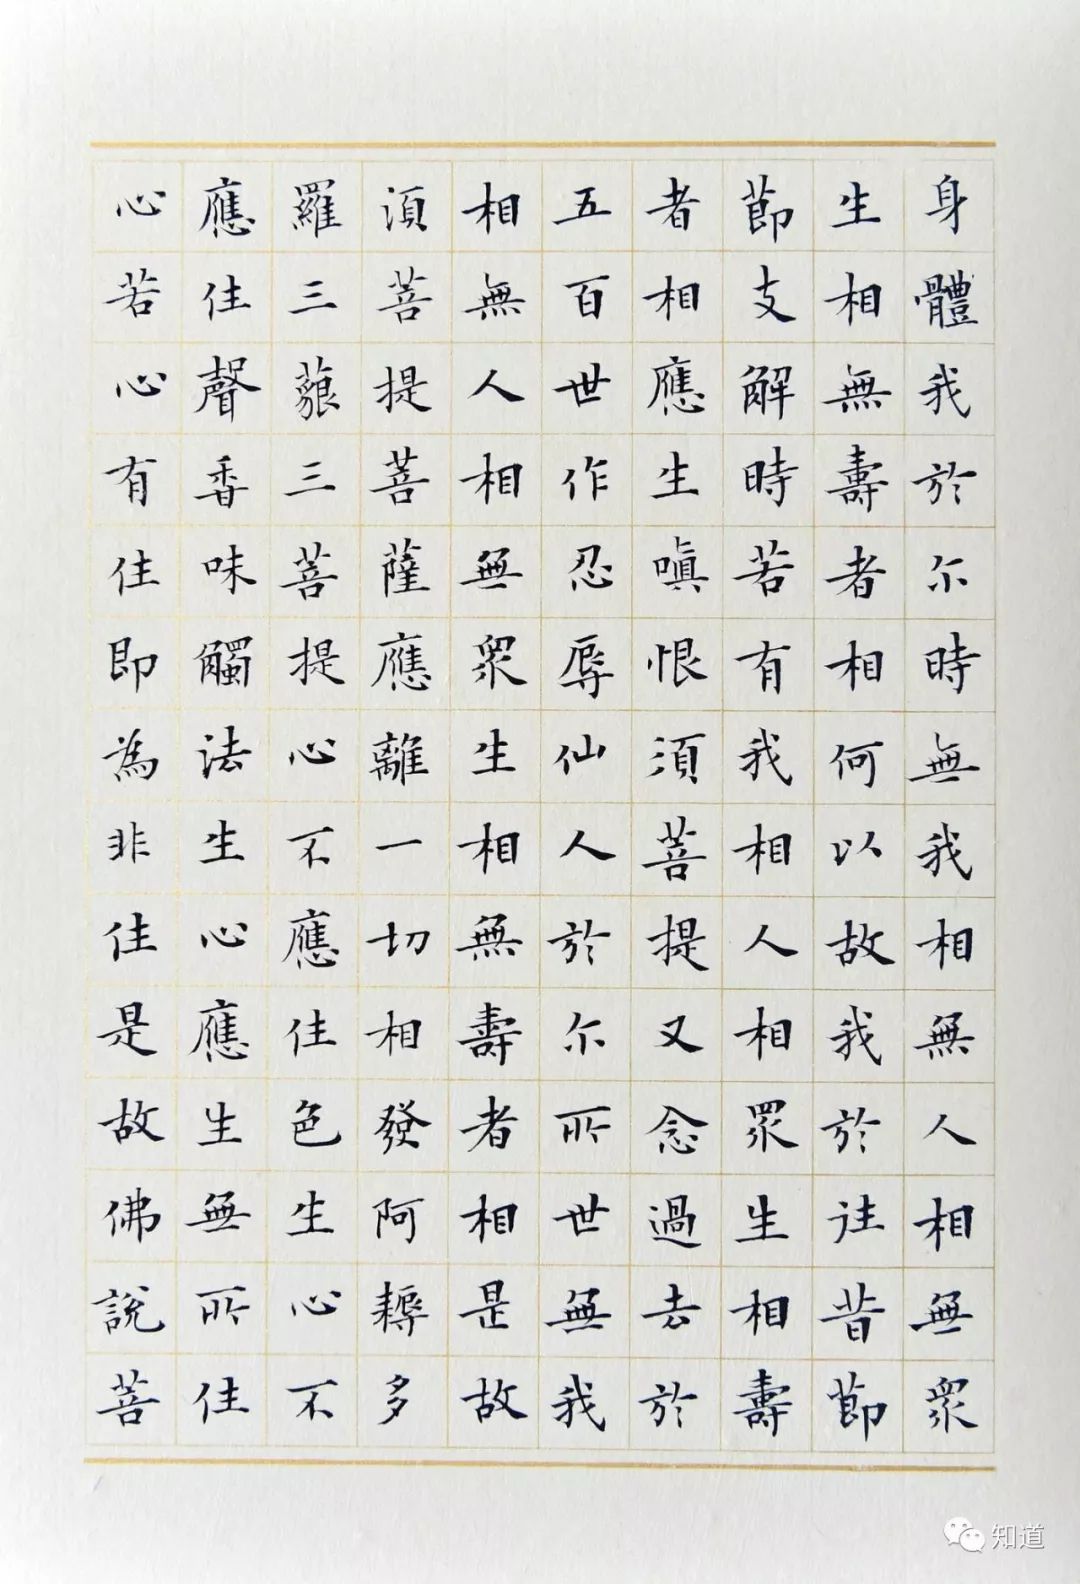 身體我於尒時無我相無人相無衆
生相無壽者相何以故我於往昔節
節支解時若有我相人相眾生相壽
者相應生嗔恨須菩提又念過去於
五百世作忍辱仙人於尒所世無我
相無人相無衆生相無壽者相是故
須菩提菩薩應離一切相發阿耨多
羅三藐三菩提心不應住色生心不
應住聲香味觸法生心應生無所住
心若心有住即為非住是故佛說菩
知道